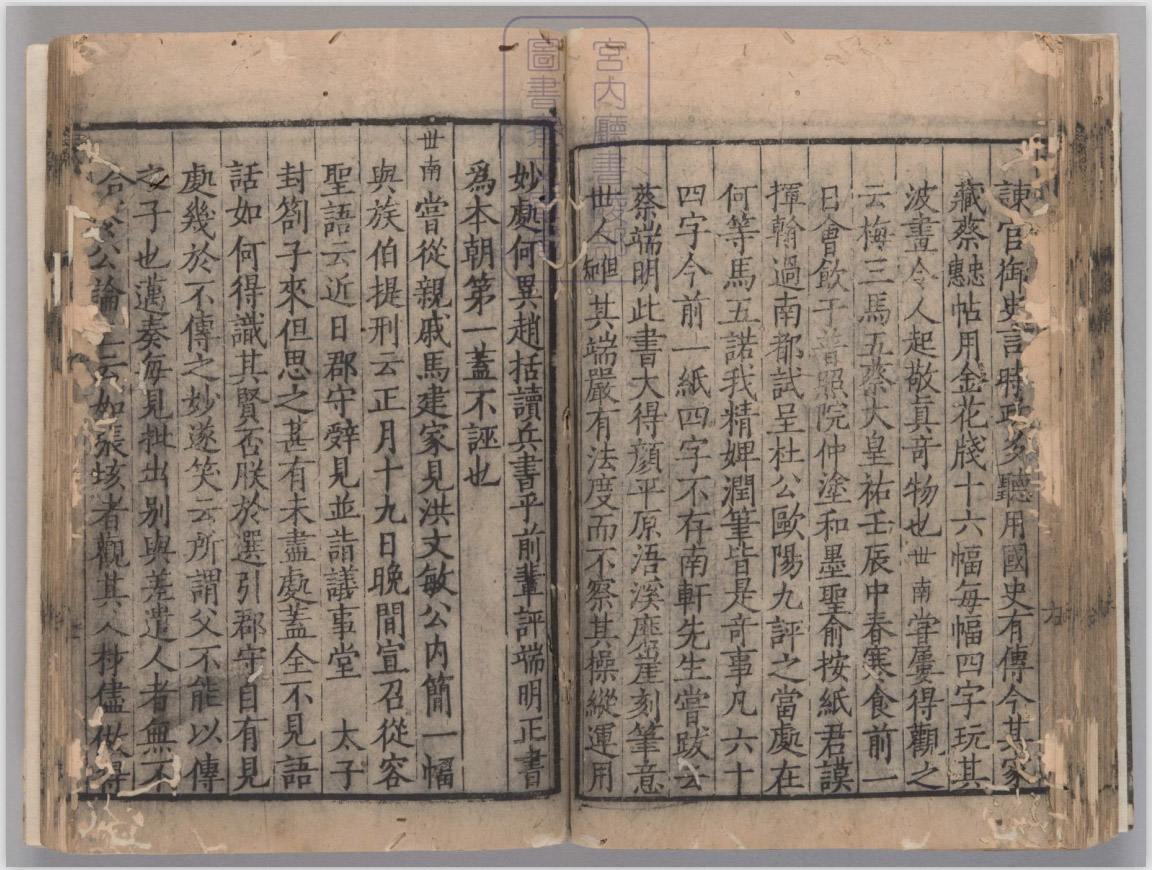 諌官御史言時政多聽用國史有傳今其家
藏蔡忠惠帖用金花牋十六幅每幅四字玩其
波畫令人起敬真竒物也世南甞屢得觀之
云梅三馬五蔡大皇祐壬辰中春寒食前一
日會飲于普照院仲塗和墨聖俞按紙君謨
揮翰過南都試呈杜公歐陽九評之當處在
何等馬五諾我精婢潤筆皆是竒事凡六十
四字今前一紙四字不存南軒先生甞跋云
蔡端明此書大得顏平原浯溪磨崖刻筆意
世人但知其端嚴有法度而不察其操縱運用
妙處何異趙括讀兵書乎前輩評端明正書
爲本朝第一蓋不誣也
世南甞從親戚馬建家見洪文敏公内簡一幅
與族伯提刑云正月十九日晚間宣召從容
聖語云近日郡守辤見並詣議事堂 太子
封劄子來但思之甚有未盡處蓋全不見語
話如何得識其賢否朕於選引郡守自有見
處幾於不傳之妙遂笑云所謂父不能以傳
之子也邁奏每見批出别與差遣人者無不
合公論如張垓者觀其人材儘做得